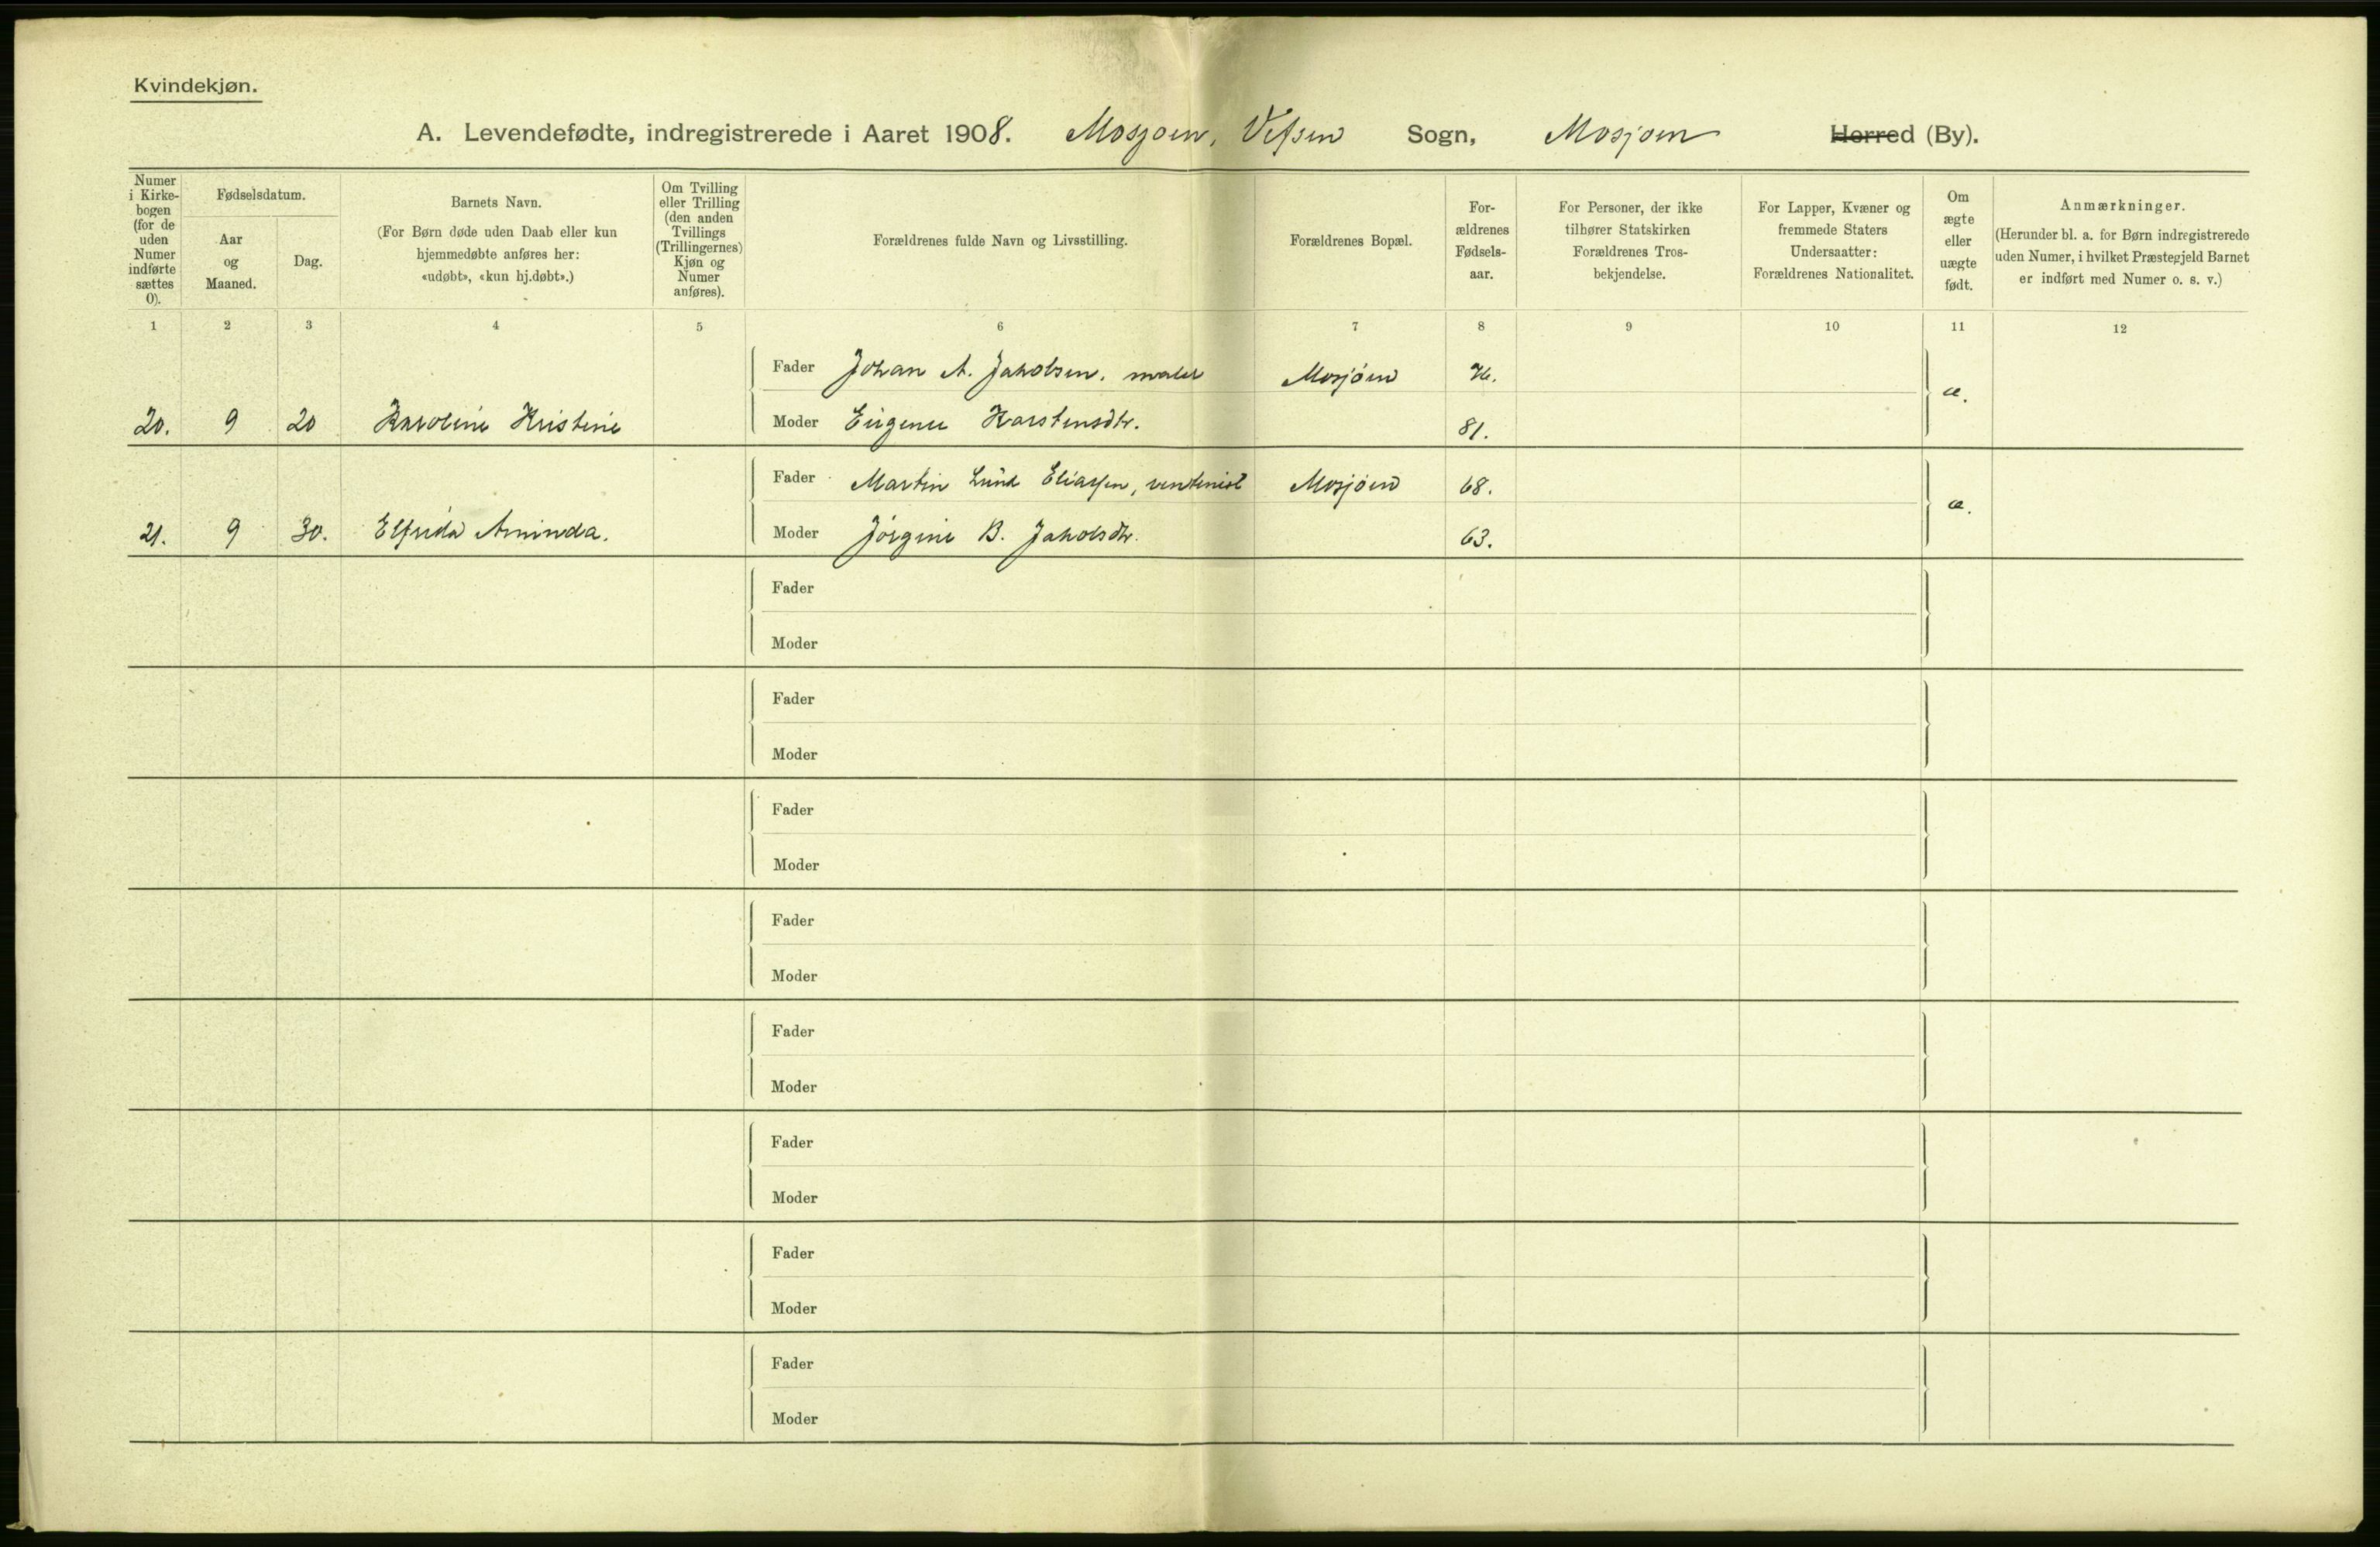 Kvindekjøn.
A. Levendefødte, indregistrerede i Aaret 1908. Mosjøen, Vefsen Sogn, Mosjøen Herred (By).
Numer i Kirkebogen (for de uden Numer indførte sættes 0).
Fødselsdatum.
Aar og Maaned.
Dag.
Barnets Navn.
(For Børn døde uden Daab eller kun
hjemmedøbte anføres her:
«udøbt», «kun hj.døbt».)
Om Tvilling
eller Trilling
(den anden
Tvillings
(Trillingernes)
Kjøn og
Numer
anføres).
Forældrenes fulde Navn og Livsstilling.
Forældrenes Bopæl.
For-
ældrenes
Fødsels-
aar.
For Personer, der ikke
tilhører Statskirken
Forældrenes Tros-
bekjendelse.
For Lapper, Kvæner og
fremmede Staters
Undersaatter:
Forældrenes Nationalitet.
Om
ægte
eller
uægte
født.
Anmærkninger.
(Herunder bl. a. for Børn indregistrerede
uden Numer, i hvilket Præstegjeld Barnet
er indført med Numer o. s. v.)
1 2 3 4 5 6 7 8 9 10 11 12
Fader Johan A. Jakobsen, maler Mosjøen 76. æ.
20. 9 20 Karoline Kristine Moder Eugenie Karstensdtr. 81.
Fader Martin Lund Eliassen, Mosjøen 68. æ.
21. 9 30. Elfrida Aminda. Moder Jørgine B. Jakobsdtr. 63.
Fader
Moder
Fader
Moder
Fader
Moder
Fader
Moder
Fader
Moder
Fader
Moder
Fader
Moder
Fader
Moder